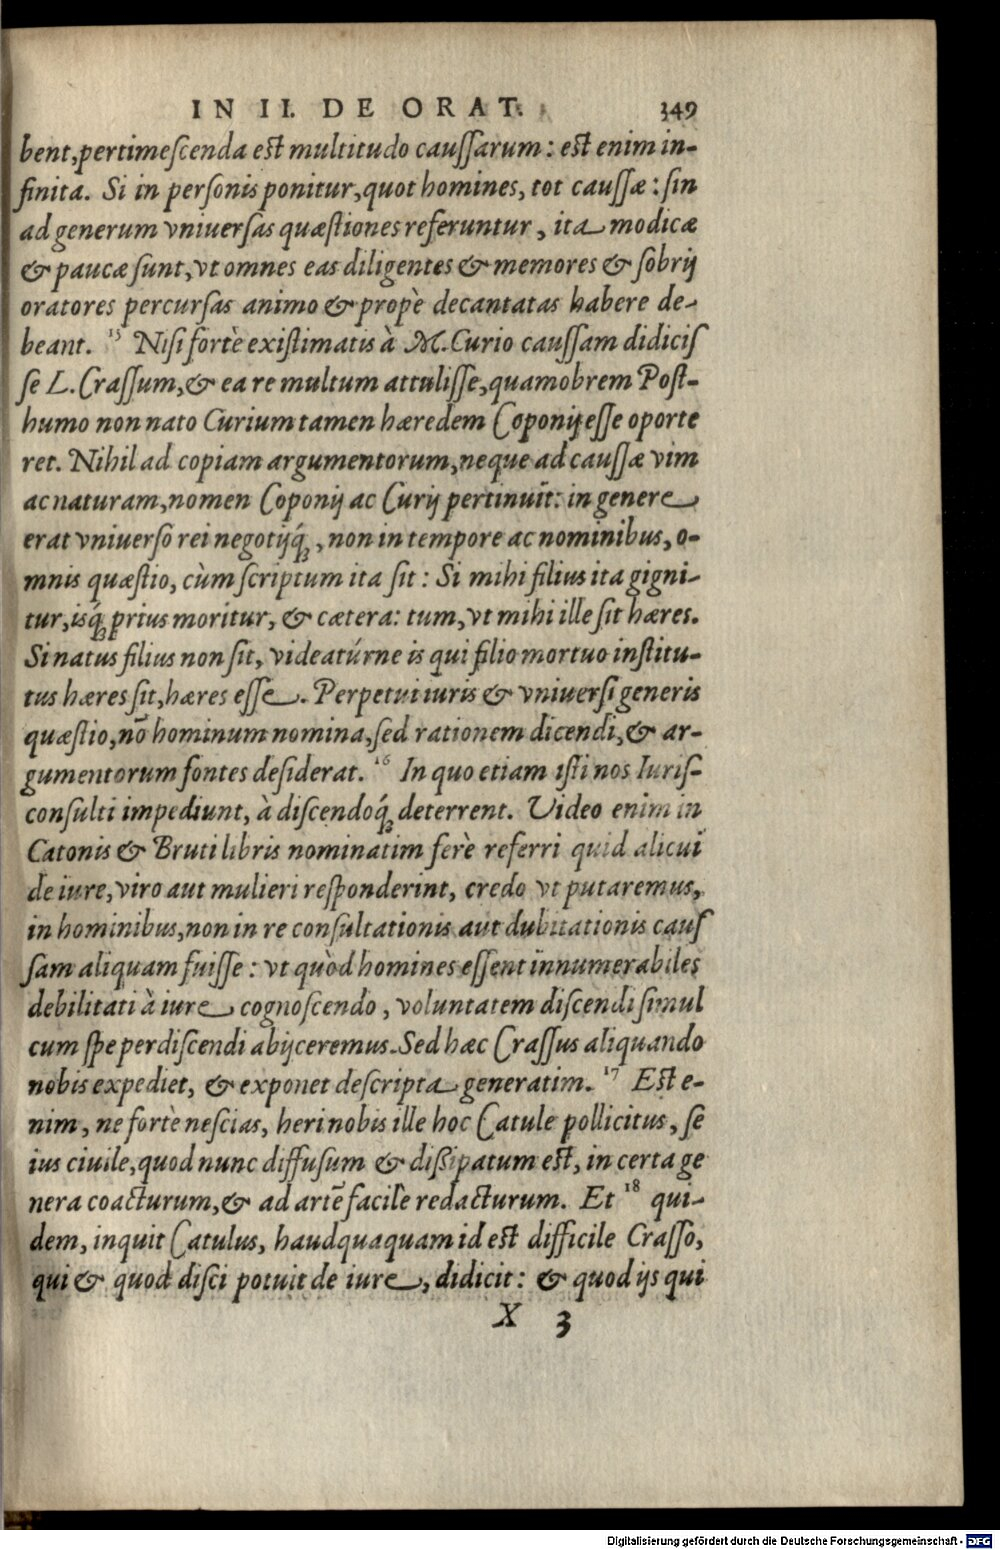 IN II. DE ORAT. 349
bent, pertimeſcenda eſt multitudo cauſſarum: eſt enim in-
finita. Si in perſonis ponitur, quot homines, tot cauſſæ: ſin
ad generum vniuerſas quæſtiones referuntur, ita modicæ
& paucæ ſunt, vt omnes eas diligentes & memores & ſobrij
oratores percurſas animo & propè decantatas habere de-
beant. 15 Niſi fortè exiſtimatis à M. Curio cauſſam didiciſ
ſe L. Craſſum, & ea re multum attuliſſe, quamobrem Poſt-
humo non nato Curium tamen hæredem Coponij eſſe oporte
ret. Nihil ad copiam argumentorum, neque ad cauſſæ vim
ac naturam, nomen Coponij ac Curij pertinuit: in genere
erat vniuerſo rei negotijq́ꝫ, non in tempore ac nominibus, o-
mnis quæſtio, cùm ſcriptum ita ſit: Si mihi filius ita gigni-
tur, isq́ꝫ prius moritur, & cætera: tum, vt mihi ille ſit hæres.
Si natus filius non ſit, videatúrne is qui filio mortuo inſtitu-
tus hæres ſit, hæres eſſe. Perpetui iuris & vniuerſi generis
quæſtio, nō hominum nomina, ſed rationem dicendi, & ar-
gumentorum fontes deſiderat. 16 In quo etiam iſti nos Iuriſ-
conſulti impediunt, à diſcendoq́ꝫ deterrent. Video enim in
Catonis & Bruti libris nominatim ferè referri quid alicui
de iure, viro aut mulieri reſponderint, credo vt putaremus,
in hominibus, non in re conſultationis aut dubitationis cauſ
ſam aliquam fuiſſe: vt quòd homines eſſent innumerabiles
debilitati à iure cognoſcendo, voluntatem diſcendi ſimul
cum ſpe perdiſcendi abijceremus. Sed hæc Craſſus aliquando
nobis expediet, & exponet deſcripta generatim. 17 Eſt e-
nim, ne fortè neſcias, heri nobis ille hoc Catule pollicitus, ſe
ius ciuile, quod nunc diffuſum & diſſipatum eſt, in certa ge
nera coacturum, & ad artē facile redacturum. Et 18 qui-
dem, inquit Catulus, haudquaquam id eſt difficile Craſſo,
qui & quod diſci potuit de iure, didicit: & quod ijs qui
X 3
Digitalisierung gefördert durch die Deutsche Forschungsgemeinschaft - DFG